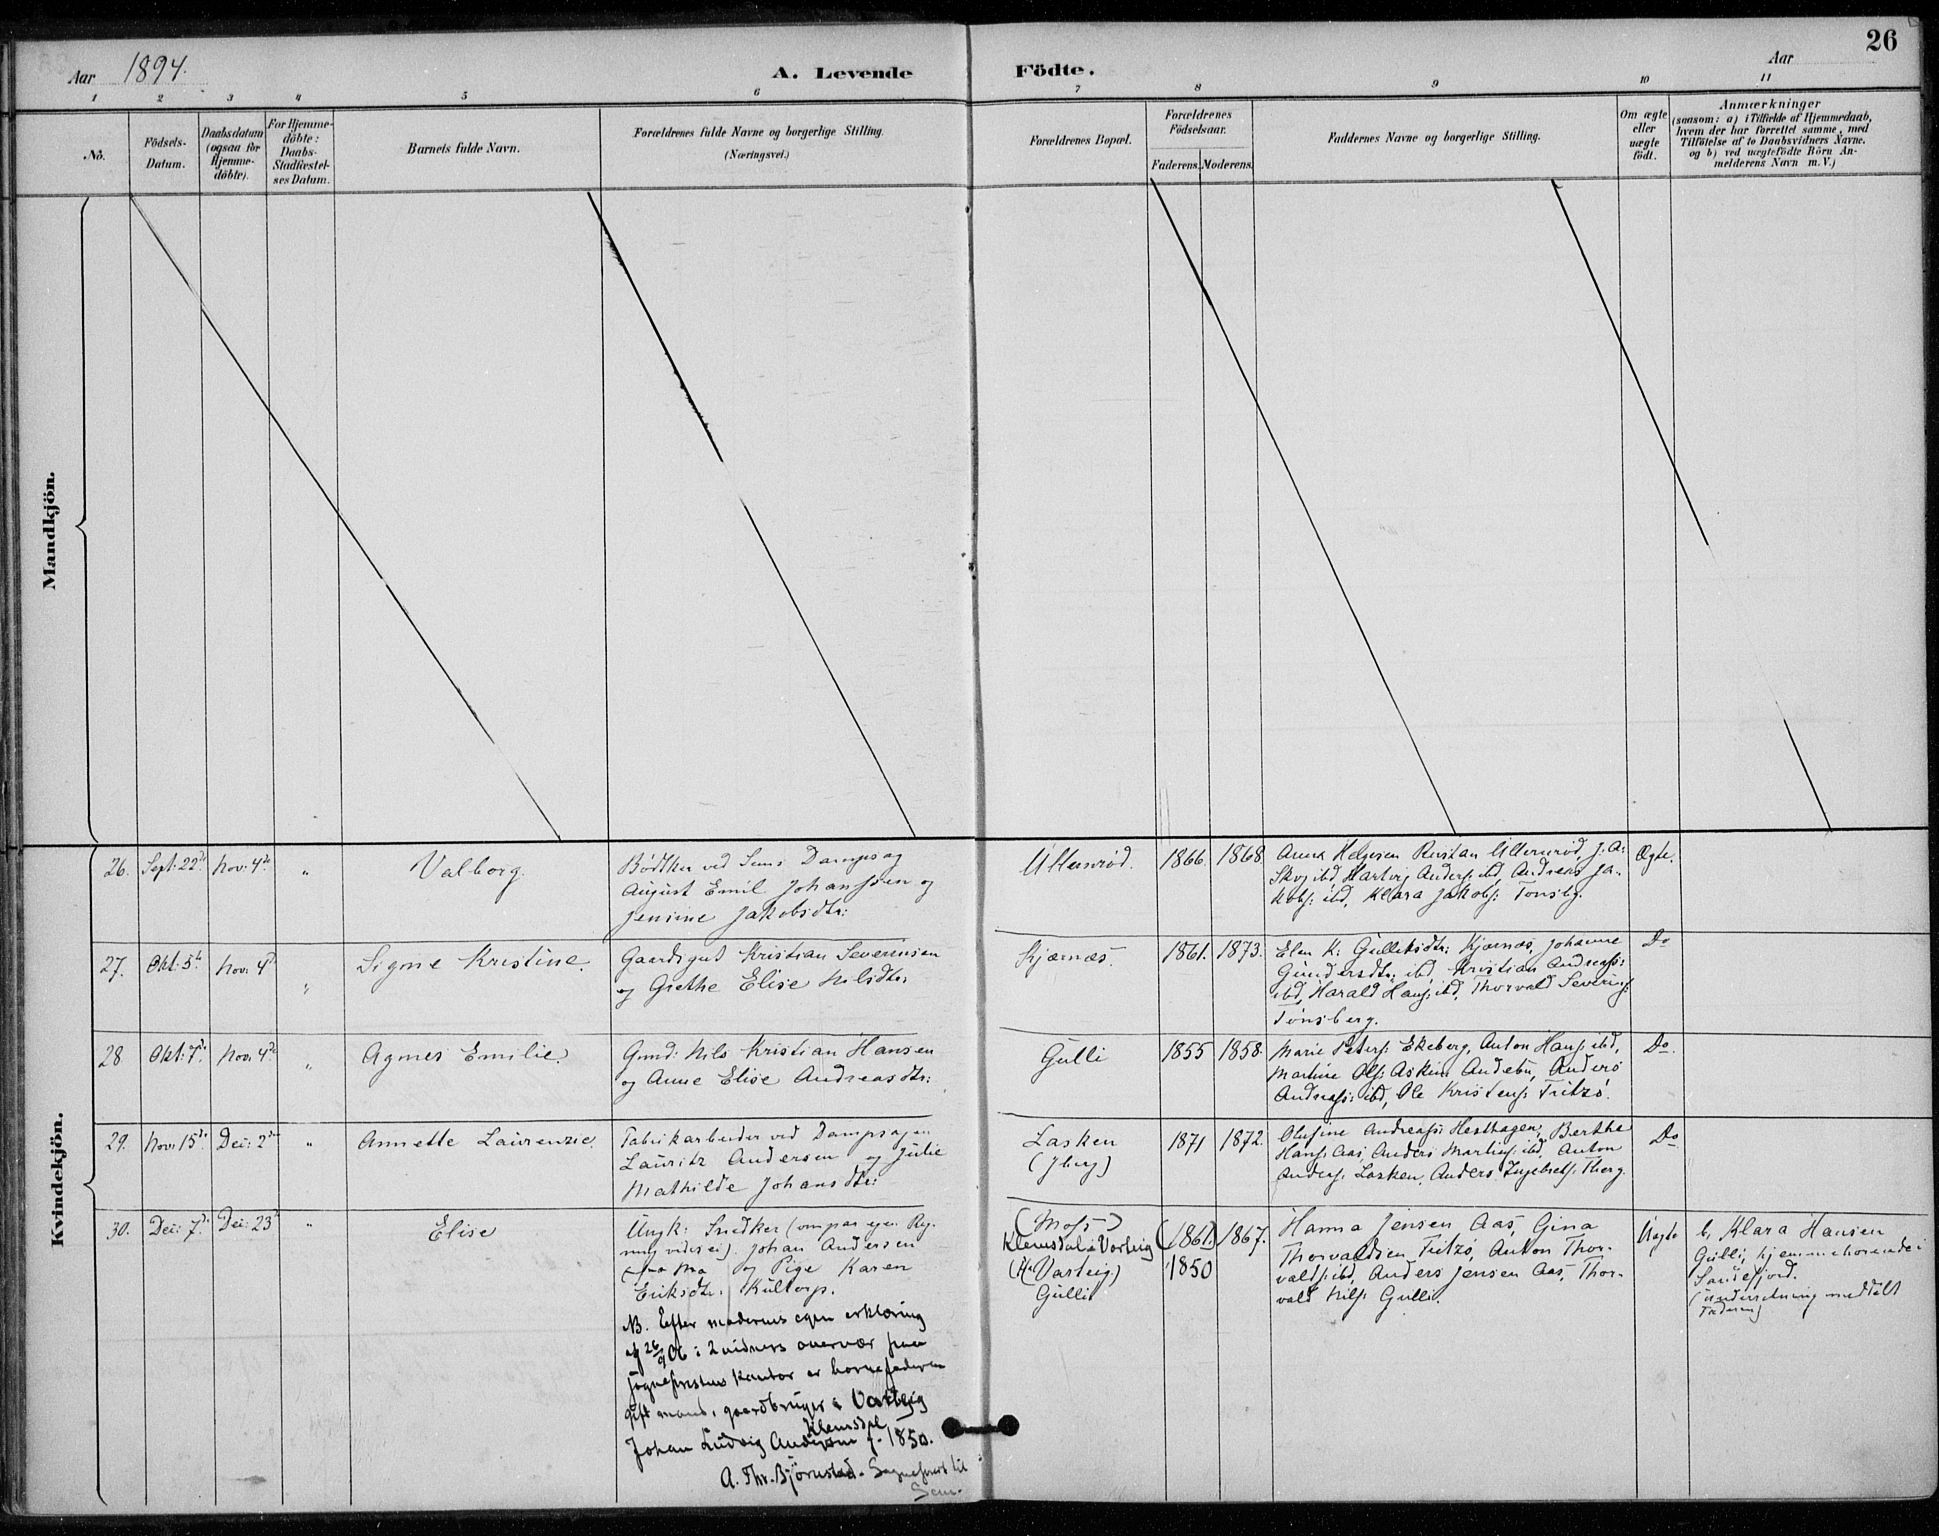 Aar 1894.
A. Levende Födte.
Aar
26
1 2 3 4 5 6 7 8 9 10 11
No.
Födsels-
Datum.
Daabsdatum
(ogsaa for
Hjemme-
döbte).
For Hjemme-
döbte:
Daabs-
Stadfæstel-
ses Datum.
Barnets fulde Navn.
Forældrenes fulde Navne og borgerlige Stilling.
(Næringsvei.)
Forældrenes Bopæl.
Forældrenes
Födselsaar.
Faderens. Moderens.
Faddernes Navne og borgerlige Stilling.
Om ægte
eller
uægte
födt.
Anmærkninger
(saasom: a) i Tilfælde af Hjemmedaab,
hvem der har forrettet samme, med
Tilföielse af to Daabsvidners Navne,
og b) ved uægtefödte Börn An-
melderens Navn m. V.)
Mandkjön.
Kvindekjön.
26. Sept: 22de Nov: 4de "
Valborg.
Bödtker ved Sems Dampsag
August Emil Johanssen og
Jensine Jakobsdtr:
Ullensröd.
1866. 1868.
Anna Helgesen Ullensröd, J. A.
Skog ibd, Andersˢ ibd, Andreas Ja-
kobs: ibd, Klara Jakobs: Tönsbg.
Ægte.
27. Okt: 5te Nov: 4de "
Signe Kristine.
Gaardsgut Kristian Severinsen
og Grethe Elise Nilsdtr.
Kjærnæs.
1861. 1873.
Elen K: Gulliksdtr: Kjærnæs, Johanne
Gundersdtr: ibd, Kristian Andreass:
ibd, Harald Hans: ibd, Thorvald Severins:
Tönsberg.
Do
28 Okt: 7de Nov: 4de "
Agnes Emilie.
Gmd: Nils Kristian Hansen
og Anne Elise Andreasdtr:
Gulli
1855 1858.
Marie Peters: Ekeberg, Anton Hans: ibd,
Martine Ols: Askim Andebu, Anders
Andreass: ibd, Ole Kristens: Fritzö.
Do.
29. Nov: 15de Dec: 2den "
Annette Laurenzie.
Fabrikarbeider ved Dampsagen
Lauritz Andersen og Julie
Mathilde Johansdtr:
Lasken
(Jberg)
1871 1872.
Olufine Andreass: Hesthagen, Berthe
Hans: Aas, Anders Martins: ibd, Anton
Anders: Lasken, Anders Ingebrets: Thorg.
Do
30. Dec: 7de Dec: 23de "
Elise
Ungk: Snedker
Johan Andersen
og Pige Karen
Eriksdtr. Kultorp.
NB. Efter moderens egen erklæring
af 26/9 06 i 2 vidners overvær paa
sogneprestens kontor er barnefaderen
gift mand, gaardbruger i Varteig
Klemsdal
Johan Ludvig Andersen f. 1850.
A. Thr. Björnstad. Sogneprest til
Sem.
(Moss)
Klemsdal i Varteig
(Varteig)
Gulli
(1861.) 1867.
1850
Hanna Jensen Aas, Gina
Thorvaldsen Fritzö, Anton Thor-
valds: ibd, Anders Jensen Aas, Thor-
vald Nils: Gulli.
Uægte
b, Klara Hansen
Gulli, hjemmehörende i
Sandefjord.
(Underretning meddelt
Faderen)